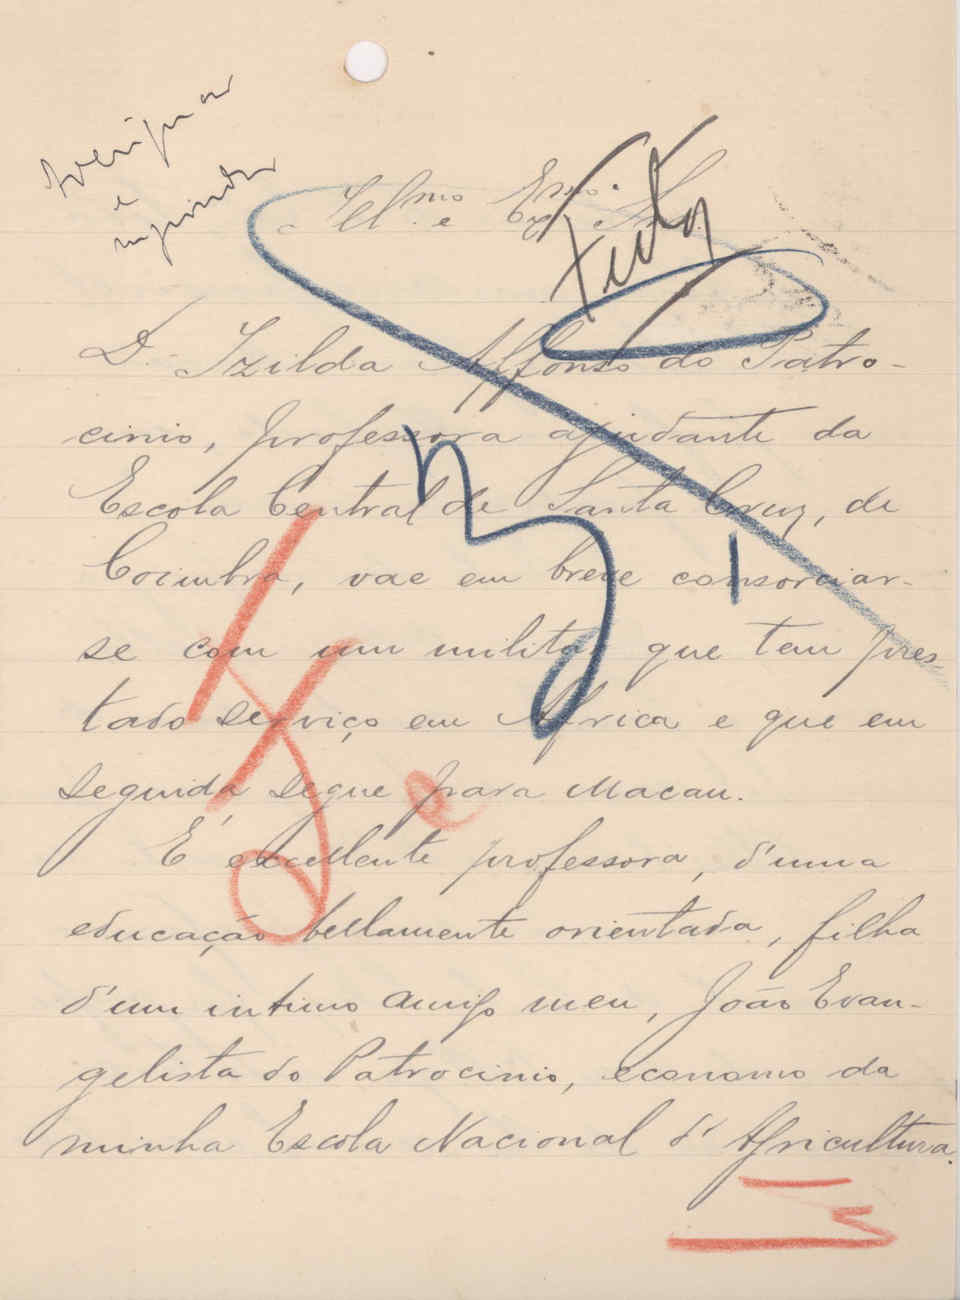 Averiguar
e
responder
Feito
Illmo. e Exmo. Sr.
D. Izilda Affonso do Patro-
cinio, professora ajudante da
Escola Central de Santa Cruz, de
Coimbra, vae em breve consorciar-
se com um militar que tem pres-
tado serviço em Africa e que em
seguida segue para Macau.
É excellente professora, d'uma
educação bellamente orientada, filha
d'um intimo amigo meu, João Evan-
gelista do Patrocinio, economo da
minha Escola Nacional d'Agricultura.